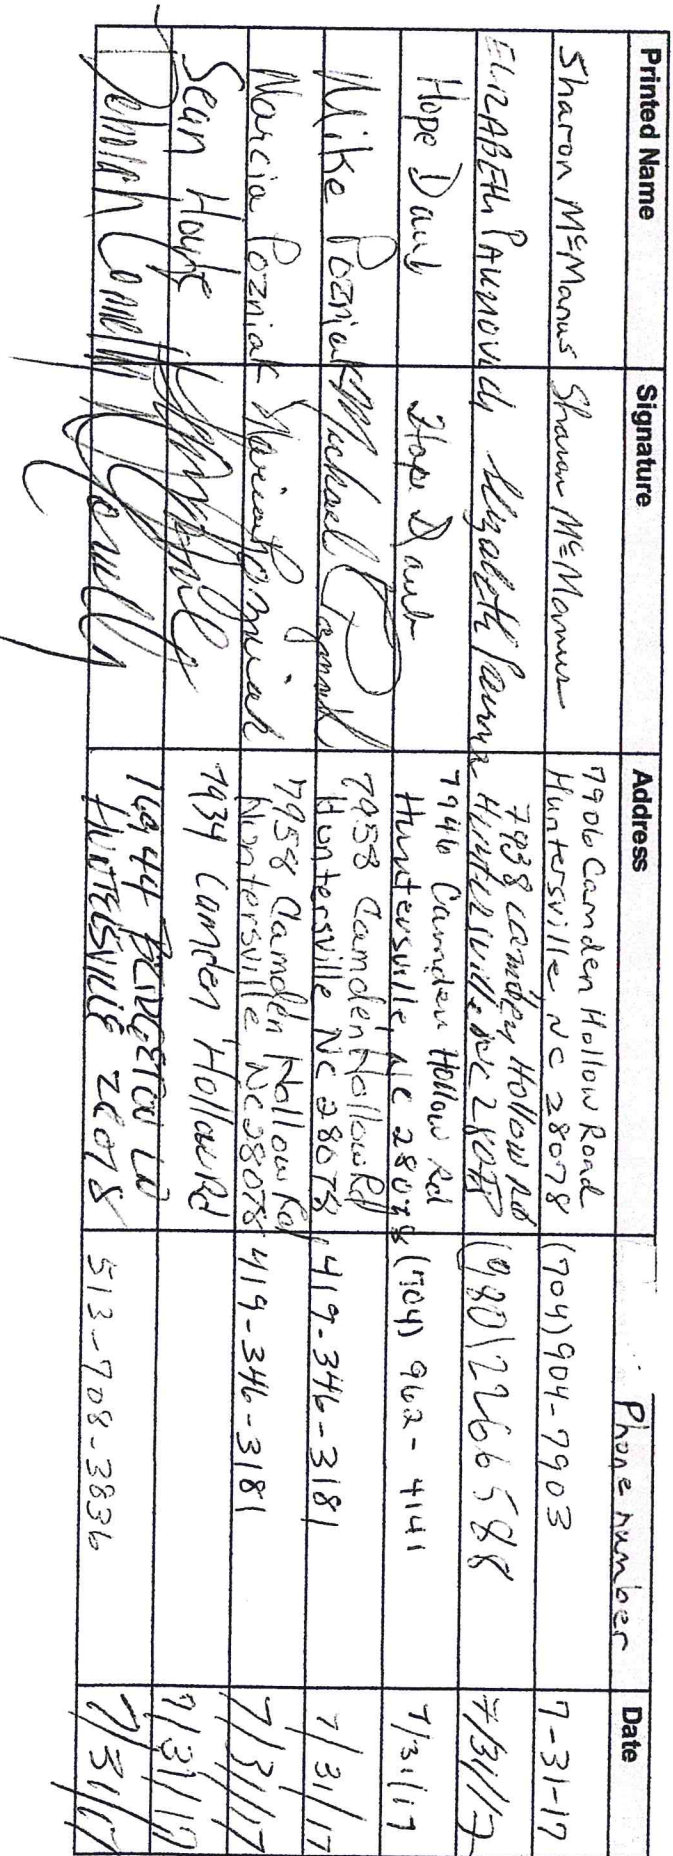 Printed Name Signature Address Phone number Date
Sharon McManus Sharon McManus 7906 Camden Hollow Road
Huntersville, NC 28078 (704) 904-7903 7-31-17
ELIZABETH PAUNOVICH Elizabeth 7938 Camden Hollow Rd
Huntersville NC 28078 (980) 2266588 7/31/17
Hope Daub Hope Daub 7946 Camden Hollow Rd
Huntersville NC 28078 (704) 962-4141 7/31/17
Mike Pozniak Michael Pozniak 7958 Camden Hollow Rd
Huntersville NC 28078 419-346-3181 7/31/17
Marcia Pozniak Marcia Pozniak 7958 Camden Hollow Rd
Huntersville NC 28078 419-346-3181 7/31/17
Sean 7934 Camden Hollow Rd 7/31/17
16944 LN
HUNTERSVILLE 28078 513-708-3836 7/31/17